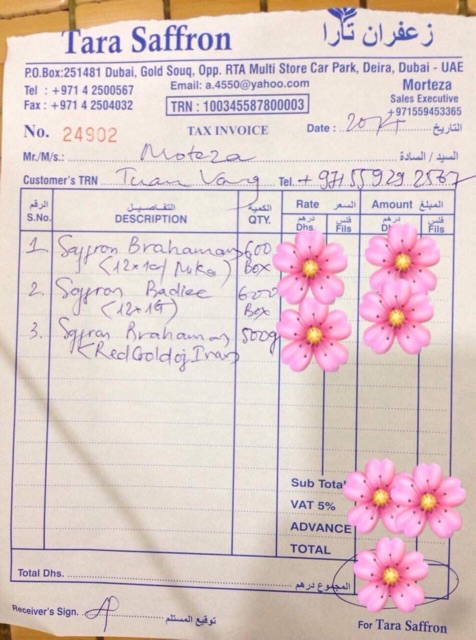 Tara Saffron
زعفران تارا
P.O.Box:251481 Dubai, Gold Souq, Opp. RTA Multi Store Car Park, Deira, Dubai - UAE
Tel : +971 4 2500567
Fax : +971 4 2504032
Email: a.4550@yahoo.com
TRN : 100345587800003
Morteza
Sales Executive
+971559453365
No. 24902
TAX INVOICE
Date : التاريخ
Mr./M/s.: Moteza السيد / السادة
Customer's TRN Tuan Vang Tel. + 971 55 929 2567
الرقم التفاصيل الكمية Rate السعر Amount المبلغ
S.No. DESCRIPTION QTY. درهم Dhs. فلس Fils درهم فلس Fils
1 Saffron Brahaman 600
(12x10/ Mika) Box
2. Saffron Badiee 6000
(12x1G) Box
3. Saffron Brahaman 500g
(Red Gold of Iran)
Sub Total
VAT 5%
ADVANCE
TOTAL
Total Dhs. المجموع درهم
Receiver's Sign. توقيع المستلم
For Tara Saffron